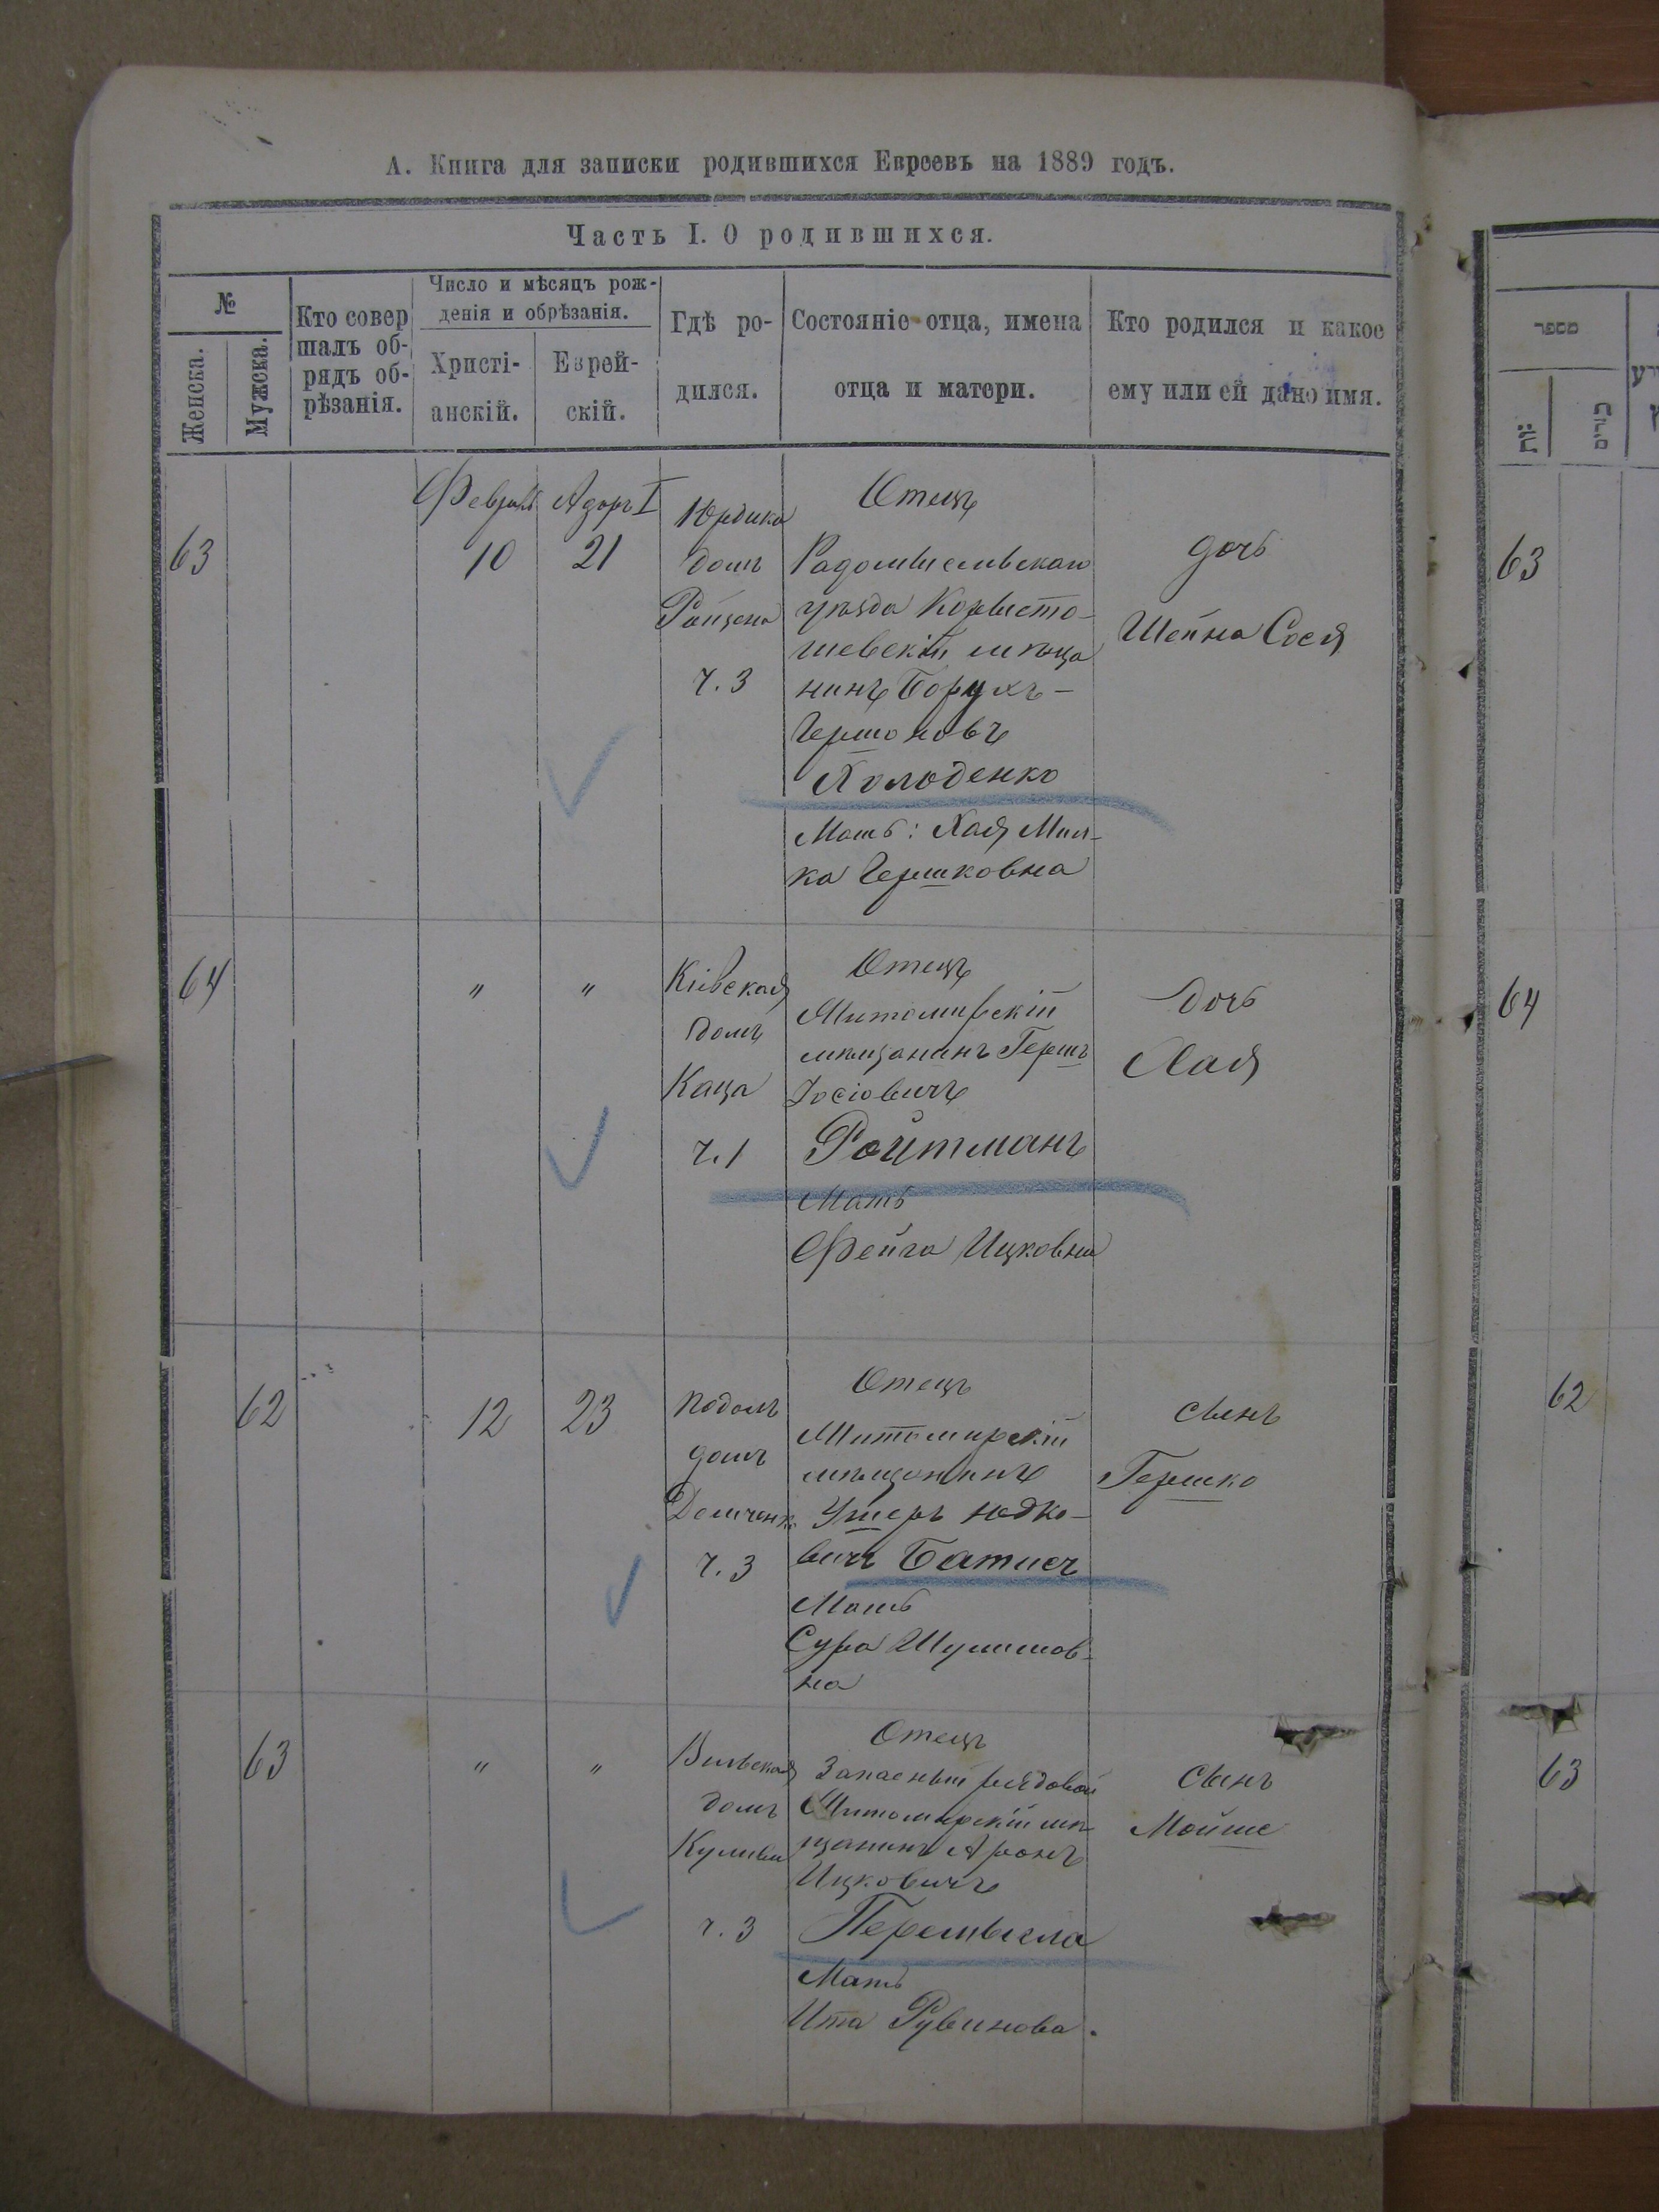 А. Книга для записки родившихся Евреевъ на 1889 годъ.
Часть I. О родившихся.
№
Женска.
Мужска.
Кто совер
шалъ об-
рядъ об-
рѣзанія.
Число и мѣсяцъ рож-
денія и обрѣзанія.
Христі-
анскій.
Еврей-
скій.
Гдѣ ро-
дился.
Состояніе отца, имена
отца и матери.
Кто родился и какое
ему или ей дано имя.
מספר
63
Февраль
10
Адоръ I
21
Юрдика
домъ
ч. 3
Отецъ
Радомысльскаго
уѣзда Користо-
шевскій мѣща
нинъ Борухъ-
Гершоновъ
Холоденко
Мать: Хая Мил-
ка Гершковна
дочь
Шейна Сося
63
64
"
"
Кіевская
домъ
Каца
ч. 1
Отецъ
Житомирскій
мѣщанинъ Гершъ
Іосіовичъ
Ройтманъ
Мать
Фейга Ицковна
дочь
Хая
64
62
12
23
Подолъ
домъ
ч. 3
Отецъ
Житомирскій
мѣщанинъ
Ушеръ Юдко-
вичъ Батисъ
Мать
Сура Шулимов-
на
сынъ
Гершко
62
63
"
"
Вильская
домъ
ч. 3
Отецъ
Запасный рядовой
Житомирскій мѣ
щанинъ Аронъ
Ицковичъ
Перемысла
Мать
Ита Рувинова.
Сынъ
Мойше
63